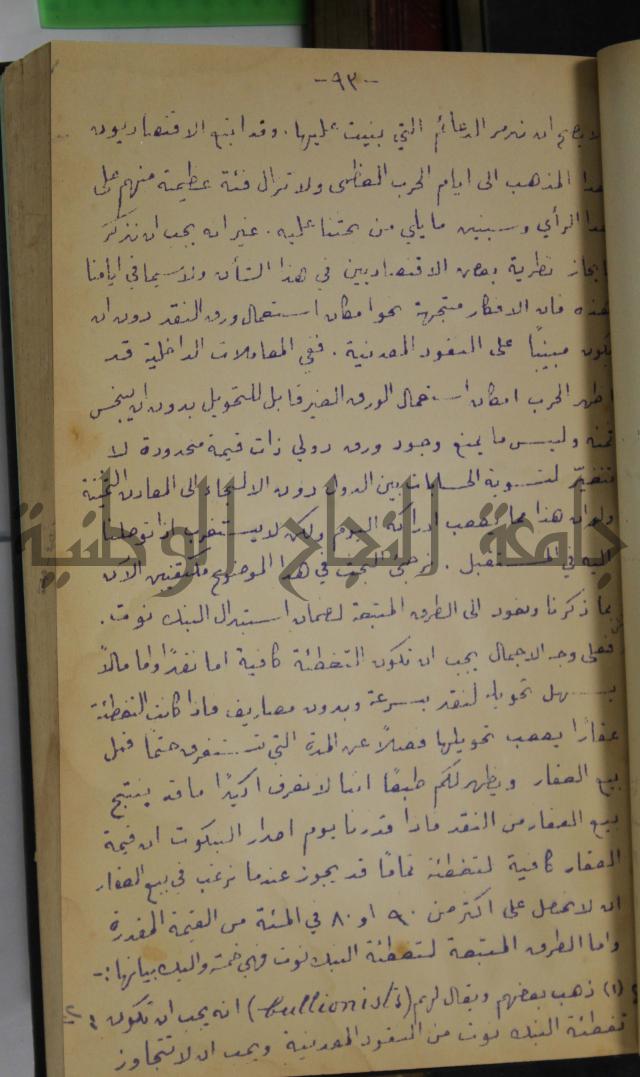 -٩٣-
ان نهدم الدعائم التي بنيت عليها. وقد اتبع الاقتصاديون
هذا المذهب الى ايام الحرب العظمى ولا تزال فئة عظيمة منهم على
هذا الرأي وسيبين ما يلي من بحثنا عليه. غير انه يجب ان نتذكر
بايجاز نظرية بعض الاقتصاديين في هذا الشأن ولاسيما في ايامنا
هذه فان الافكار متجهة نحو امكان استعمال ورق النقد دون ان
تكون مبنياً على النقود المعدنية. ففي المعاملات الداخلية قد
اظهر الحرب امكان استعمال الورق الغير قابل للتحويل بدون ان يبخس
ثمنه وليس ما يمنع وجود ورق دولي ذات قيمة محدودة لا
تتغير لتسوية الحسابات بين الدول دون الالتجاء الى المعادن الثمينة
ولو ان هذا مما يصعب ادراكه اليوم ولكن لا يستغرب اذا توصلنا
اليه في المستقبل. البحث في هذا الموضوع مكتفين الآن
بما ذكرنا ونعود الى الطرق المتبعة لضمان استبدال البنك نوت.
فعلى وجه الاجمال يجب ان تكون التغطئة كافية اما نقداً واما مالاً
يسهل تحويله لنقد بسرعة وبدون مصاريف فاذا كانت التغطئة
عقاراً يصعب تحويلها فضلاً عن المدة التي تستغرق حتما قبل
بيع العقار ويظهر لكم طبعاً اننا لا نعرف اكيداً ما قد ينتج
بيع العقار من النقد فاذا قدرنا يوم اصدار البنكوت ان قيمة
العقار كافية لتغطئته تماماً قد يجوز عندما نرغب في بيع العقار
ان لا نحصل على اكثر من ٩٠ او ٨٠ في المئة من القيمة المقدرة
واما الطرق المتبعة لتغطئة البنك نوت فهي خمسة واليك بيانها:-
(١) ذهب بعضهم ويقال لهم (bullionists) انه يجب ان تكون
تغطئة البنك نوت من النقود المعدنية ويجب ان لا تتجاوز
جامعة النجاح الوطنية